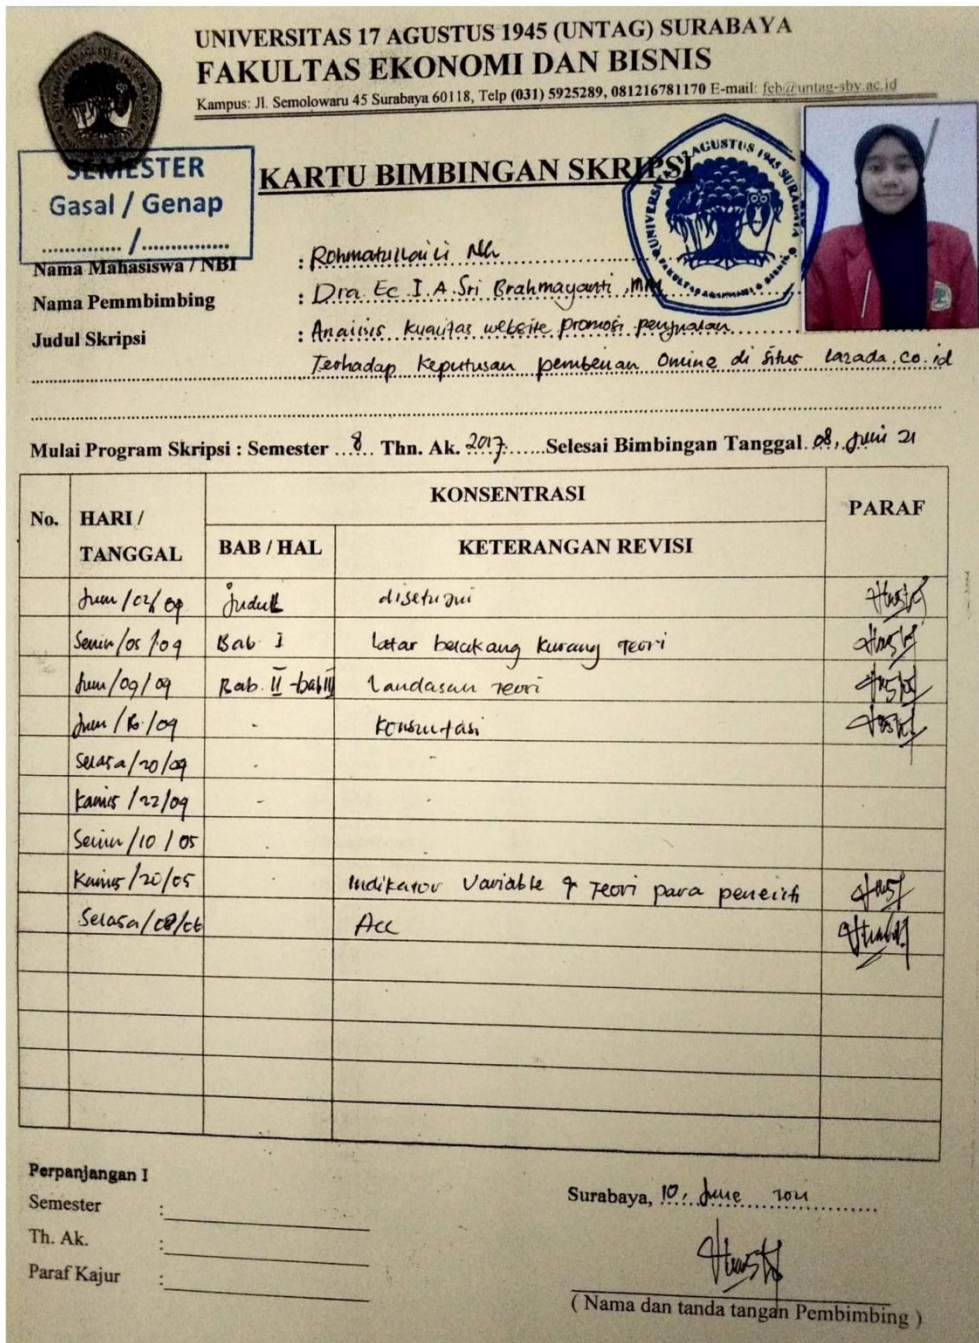 UNIVERSITAS 17 AGUSTUS 1945 (UNTAG) SURABAYA
FAKULTAS EKONOMI DAN BISNIS
Kampus: Jl. Semolowaru 45 Surabaya 60118, Telp (031) 5925289, 081216781170 E-mail: feb@untag-sby.ac.id
SEMESTER
Gasal / Genap
............. /...............
KARTU BIMBINGAN SKRIPSI
Nama Mahasiswa / NBI :
Nama Pemmbimbing : Dra Ec I.A. Sri Brahmayanti, MM
Judul Skripsi : Analisis kualitas website promosi penjualan
Terhadap Keputusan pembelian Online di situs lazada.co.id
Mulai Program Skripsi : Semester 8 Thn. Ak. 2017 Selesai Bimbingan Tanggal 08, Juni 21
No. HARI / TANGGAL KONSENTRASI PARAF
BAB / HAL KETERANGAN REVISI
judul disetujui
Senin/05/09 Bab I latar belakang kurang teori
/09/09 Bab II - bab III Landasan teori
/09 - Konsultasi
Selasa/20/09 - -
Kamis/22/09 - -
Senin/10/05
Kamis/20/05 - Indikator Variable & teori para peneliti
Selasa/08/06 Acc
Perpanjangan I
Semester :
Th. Ak. :
Paraf Kajur :
Surabaya, 10, June 2021
( Nama dan tanda tangan Pembimbing )